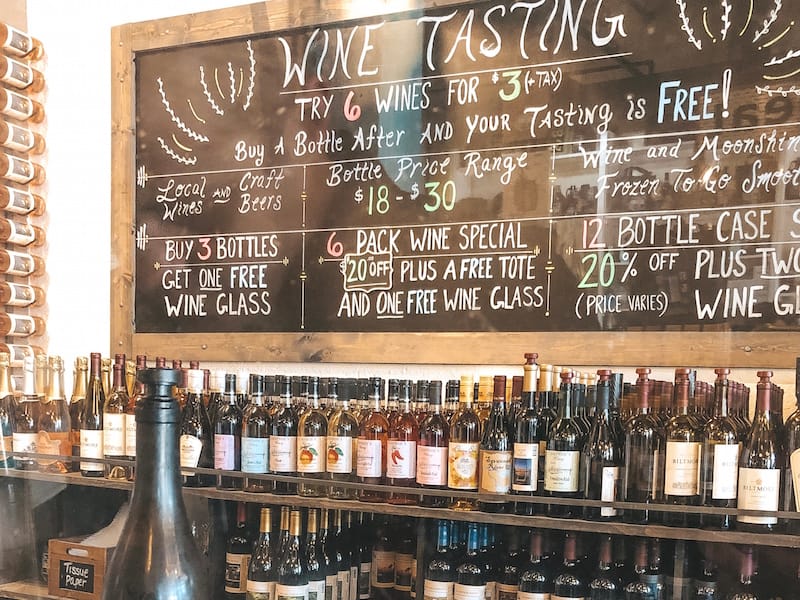 WINE TASTING
TRY 6 WINES FOR $3 (+TAX)
BUY A BOTTLE AFTER AND YOUR TASTING is FREE!
LOCAL AND CRAFT
WINES BEERS
Bottle Price Range
$18 - $30
WiNE AND MOONSHIN
FROZEN TO GO SMOOT
BUY 3 BOTTLES
GET ONE FREE
WINE GLASS
6 PACK WINE SPECIAL
$20 OFF PLUS A FREE TOTE
AND ONE FREE WINE GLASS
12 BOTTLE CASE S
20% OFF PLUS TWO
(PRICE VARIES) WINE GL
BILTMORE
BILTMORE
TISSUE
PAPER